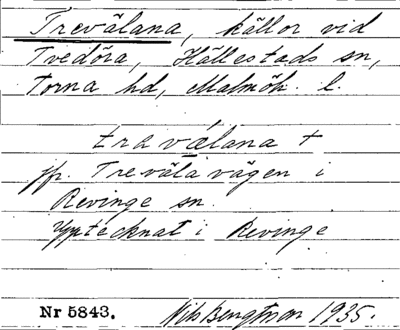 Trevälana, källor vid
Tvedöra, Hällestads sn,
Torna hd, Malmöh. l.
travälana +
jfr. Treväla vägen i
Revinge sn.
Upptecknat i Revinge
Nr 5843. Nils Bengtsson 1935.